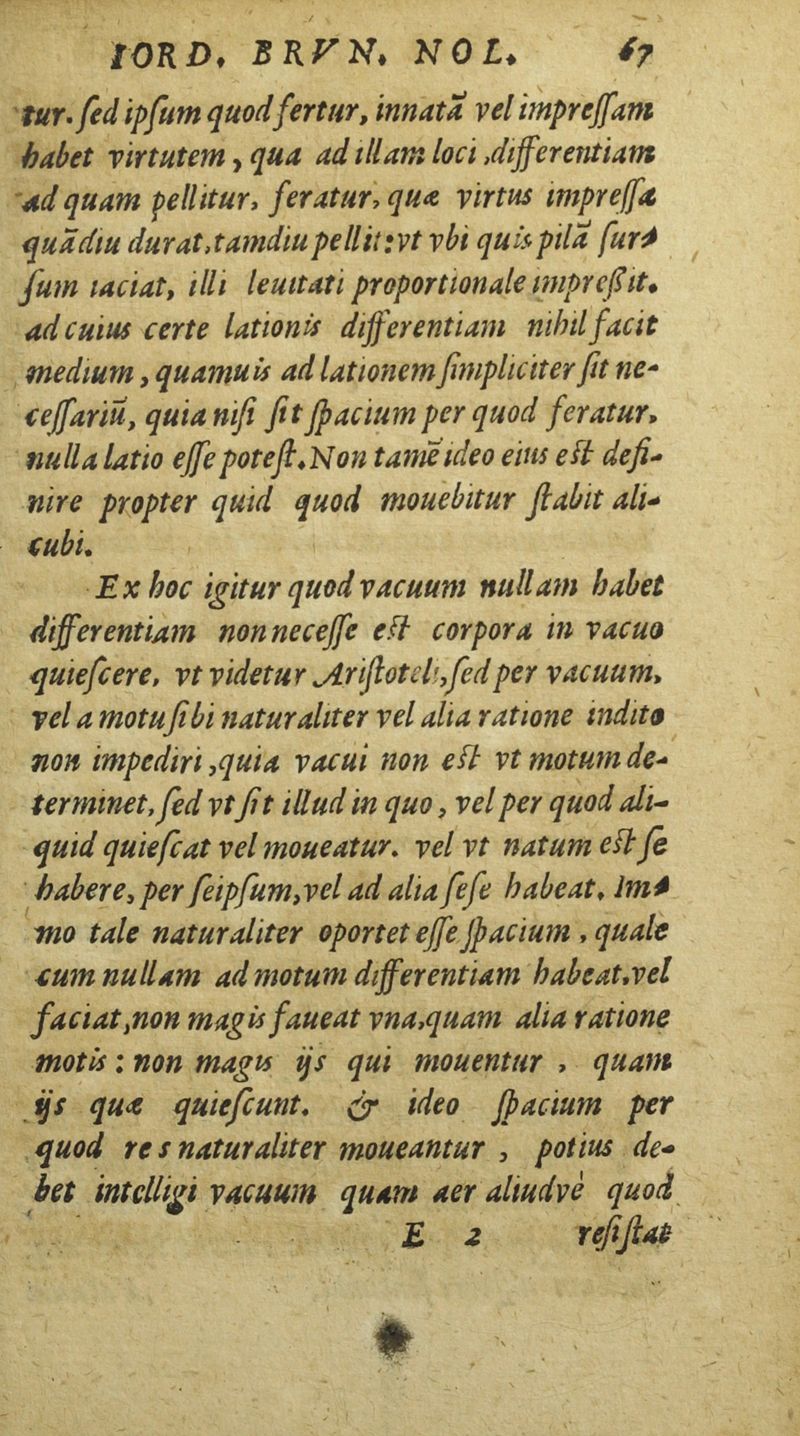 IORD. BRVN. NOL. 67
tur. ſed ipſum quod fertur, innatã vel impreſſam
habet virtutem, qua ad illam loci ,differentiam
ad quam pellitur, feratur, quæ virtus impreſſa
quãdiu durat,tamdiu pellit: vt vbi quis pilã ſur-
ſum iaciat, illi leuitati proportionale impreßit.
ad cuius certe lationis differentiam nihil facit
medium, quamuis ad lationem ſimpliciter ſit ne-
ceſſariũ, quia niſi ſit ſpacium per quod feratur,
nulla latio eſſe poteſt. Non tamẽ ideo eius eſt defi-
nire propter quid quod mouebitur ſtabit ali-
cubi.
Ex hoc igitur quod vacuum nullam habet
differentiam non neceſſe eſt corpora in vacuo
quieſcere, vt videtur Ariſtoteli,ſed per vacuum,
vel a motu ſibi naturaliter vel alia ratione indito
non impediri ,quia vacui non eſt vt motum de-
terminet, ſed vt ſit illud in quo, vel per quod ali-
quid quieſcat vel moueatur. vel vt natum eſt ſe
habere, per ſeipſum,vel ad alia ſeſe habeat. Im-
mo tale naturaliter oportet eſſe ſpacium , quale
cum nullam ad motum differentiam habeat,vel
faciat,non magis faueat vna,quam alia ratione
motis: non magis ijs qui mouentur , quam
ijs quæ quieſcunt. & ideo ſpacium per
quod res naturaliter moueantur , potius de-
bet intelligi vacuum quam aer aliudvè quod
E 2 reſiſtat